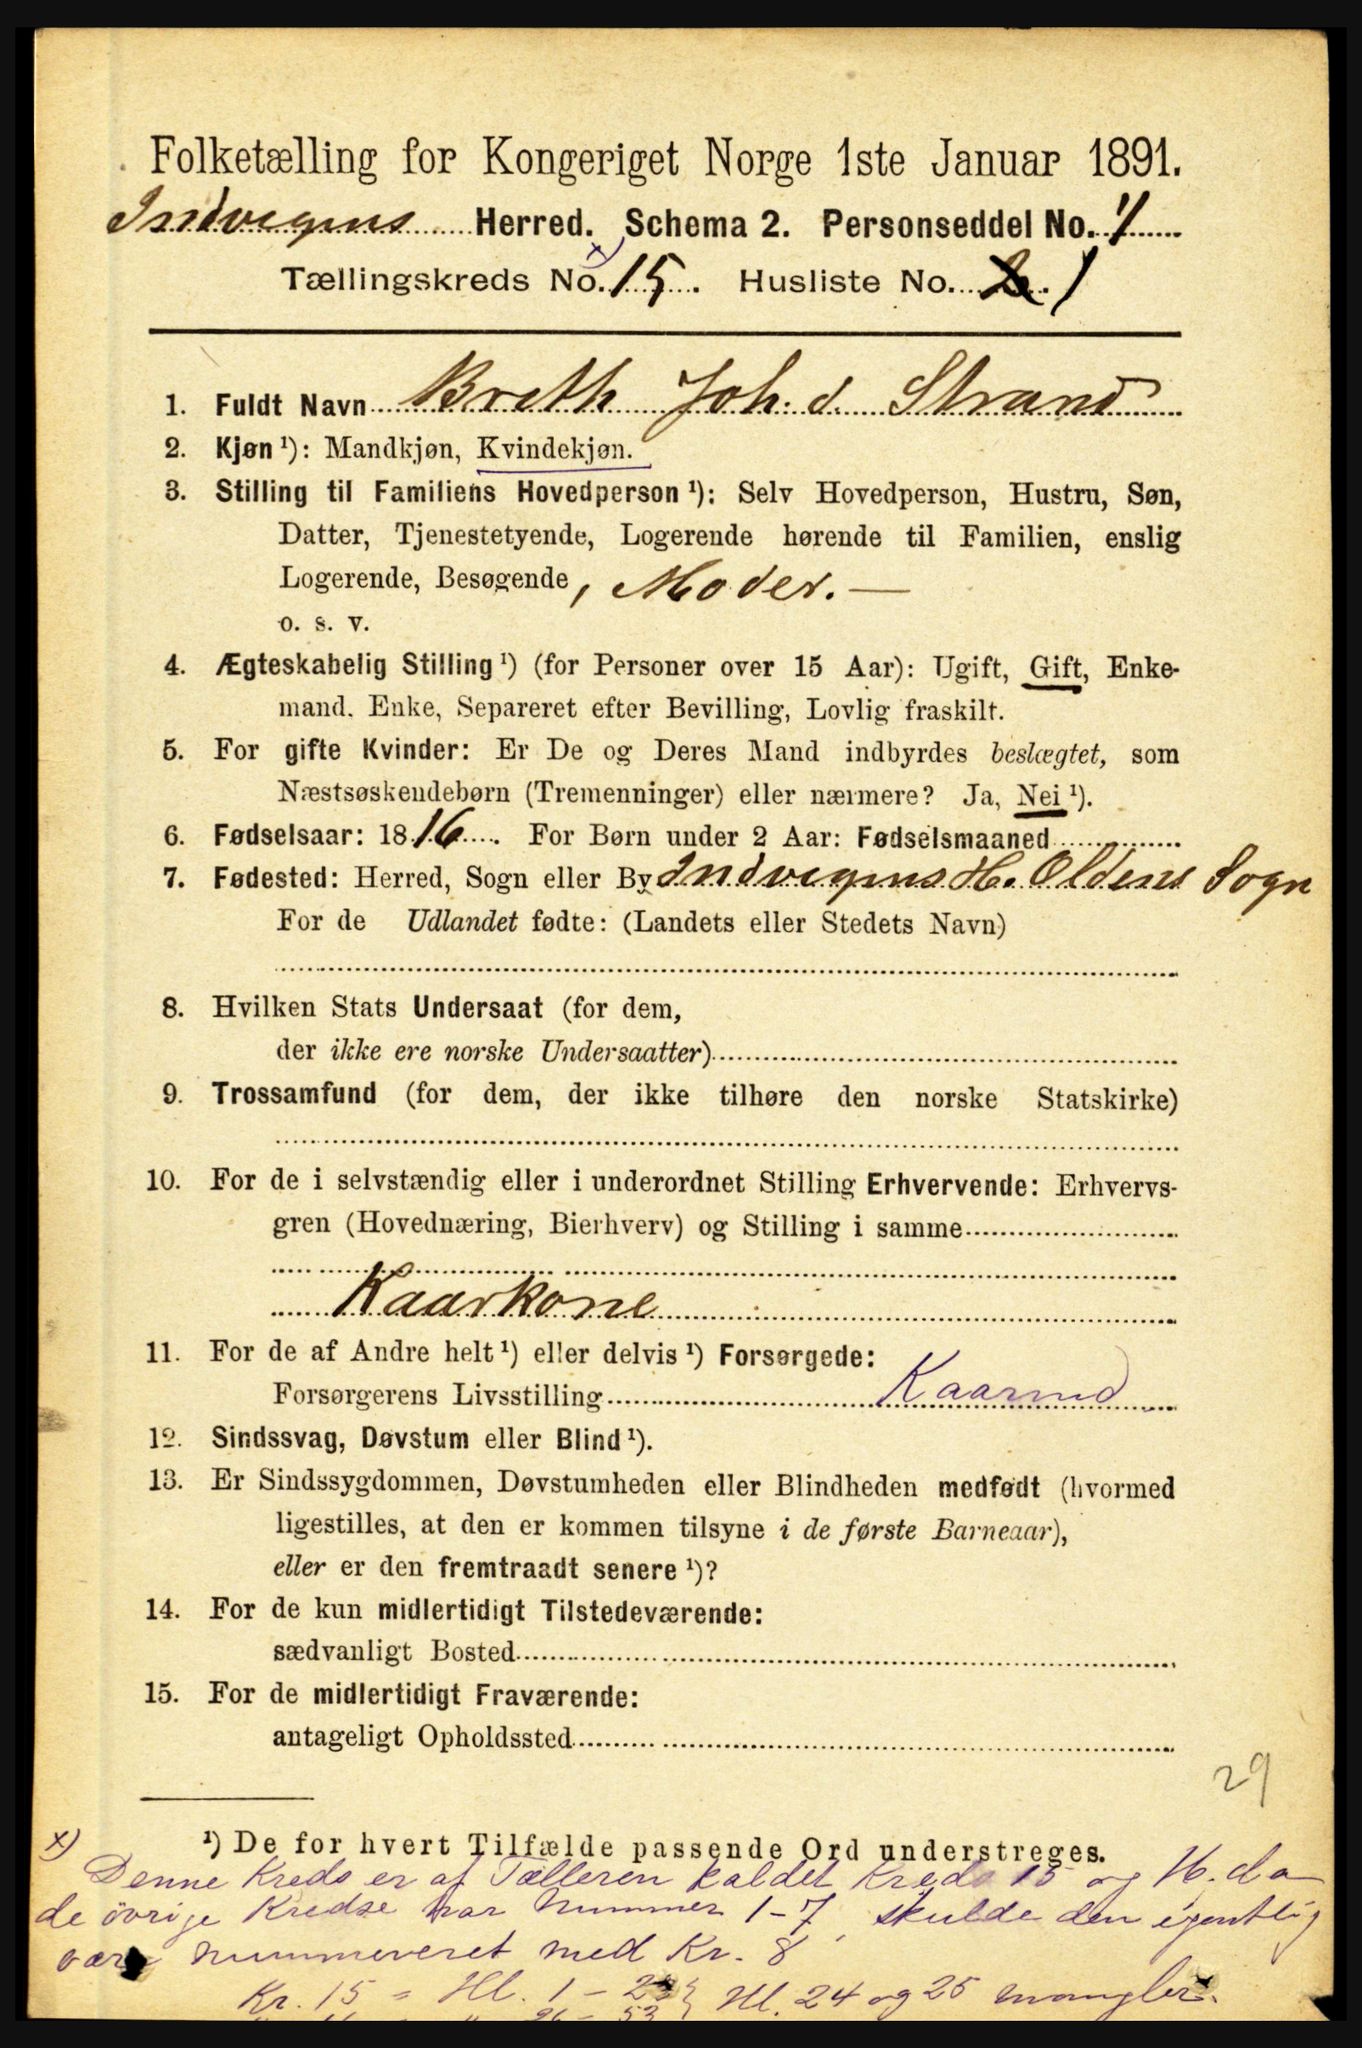 Folketælling for Kongeriget Norge 1ste Januar 1891.
Indvigens Herred. Schema 2. Personseddel No. 1
Tællingskreds No. x) 15. Husliste No. 2. 1
1. Fuldt Navn Breth Joh. d. Strand
2. Kjøn ¹): Mandkjøn, Kvindekjøn.
3. Stilling til Familiens Hovedperson ¹): Selv Hovedperson, Hustru, Søn,
Datter, Tjenestetyende, Logerende hørende til Familien, enslig
Logerende, Besøgende, Moder. —
o. s. v.
4. Ægteskabelig Stilling ¹) (for Personer over 15 Aar): Ugift, Gift, Enke-
mand, Enke, Separeret efter Bevilling, Lovlig fraskilt.
5. For gifte Kvinder: Er De og Deres Mand indbyrdes beslægtet, som
Næstsøskendebørn (Tremenninger) eller nærmere? Ja, Nei ¹).
6. Fødselsaar: 1816. For Børn under 2 Aar: Fødselsmaaned
7. Fødested: Herred, Sogn eller By Indvigens H. Oldens Sogn
For de Udlandet fødte: (Landets eller Stedets Navn)
8. Hvilken Stats Undersaat (for dem,
der ikke ere norske Undersaatter)
9. Trossamfund (for dem, der ikke tilhøre den norske Statskirke)
10. For de i selvstændig eller i underordnet Stilling Erhvervende: Erhvervs-
gren (Hovednæring, Bierhverv) og Stilling i samme
Kaarkone
11. For de af Andre helt ¹) eller delvis ¹) Forsørgede:
Forsørgerens Livsstilling Kaarmd
12. Sindssvag, Døvstum eller Blind ¹).
13. Er Sindssygdommen, Døvstumheden eller Blindheden medfødt (hvormed
ligestilles, at den er kommen tilsyne i de første Barneaar),
eller er den fremtraadt senere ¹)?
14. For de kun midlertidigt Tilstedeværende:
sædvanligt Bosted
15. For de midlertidigt Fraværende:
antageligt Opholdssted
29
¹) De for hvert Tilfælde passende Ord understreges.
x) Denne Kreds er af Tælleren kaldet Kreds 15 og 16. da
de övrige Kredse har Nummer 1-7, skulde den egentlig
være nummereret med Kr. 8
Kr. 15 = Hl. 1 - 23 } Hl. 24 og 25 mangler.
26 - 53